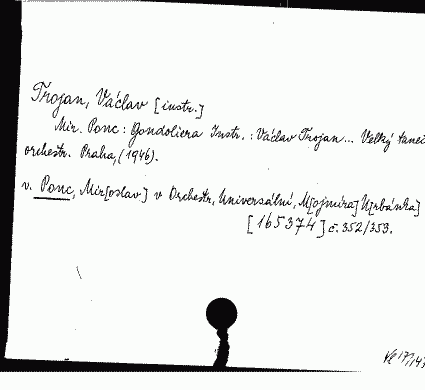 Trojan, Václav [instr.]
Mir. Ponc: Gondoliera Instr.: Václav Trojan... Velký taneč
orchestr. Praha, (1946).
v. Ponc, Mir[oslav] v Orchestr, Universální, M[ojmíra] U[rbánka]
[165374] č. 352/353.